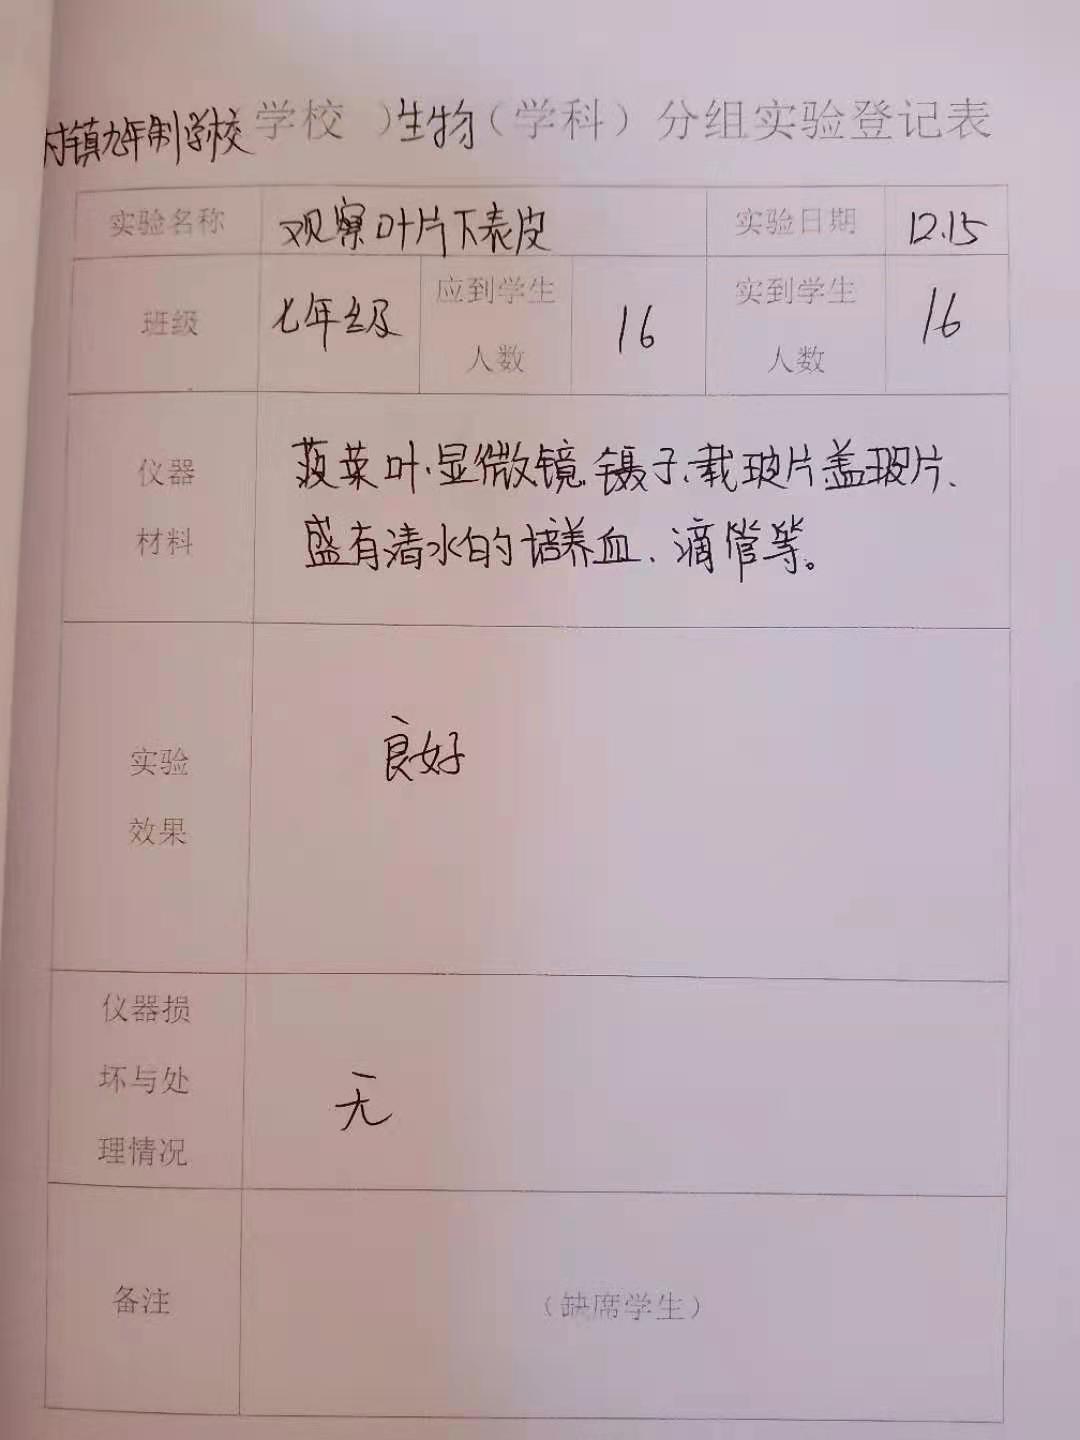 村镇九年制学校 学校 ）生物（学科）分组实验登记表
实验名称 观察叶片下表皮 实验日期 12.15
班级 七年级 应到学生人数 16 实到学生人数 16
仪器材料
菠菜叶.显微镜.镊子.载玻片.盖玻片、
盛有清水的培养血、滴管等。
实验效果 良好
仪器损坏与处理情况 无
备注 （缺席学生）